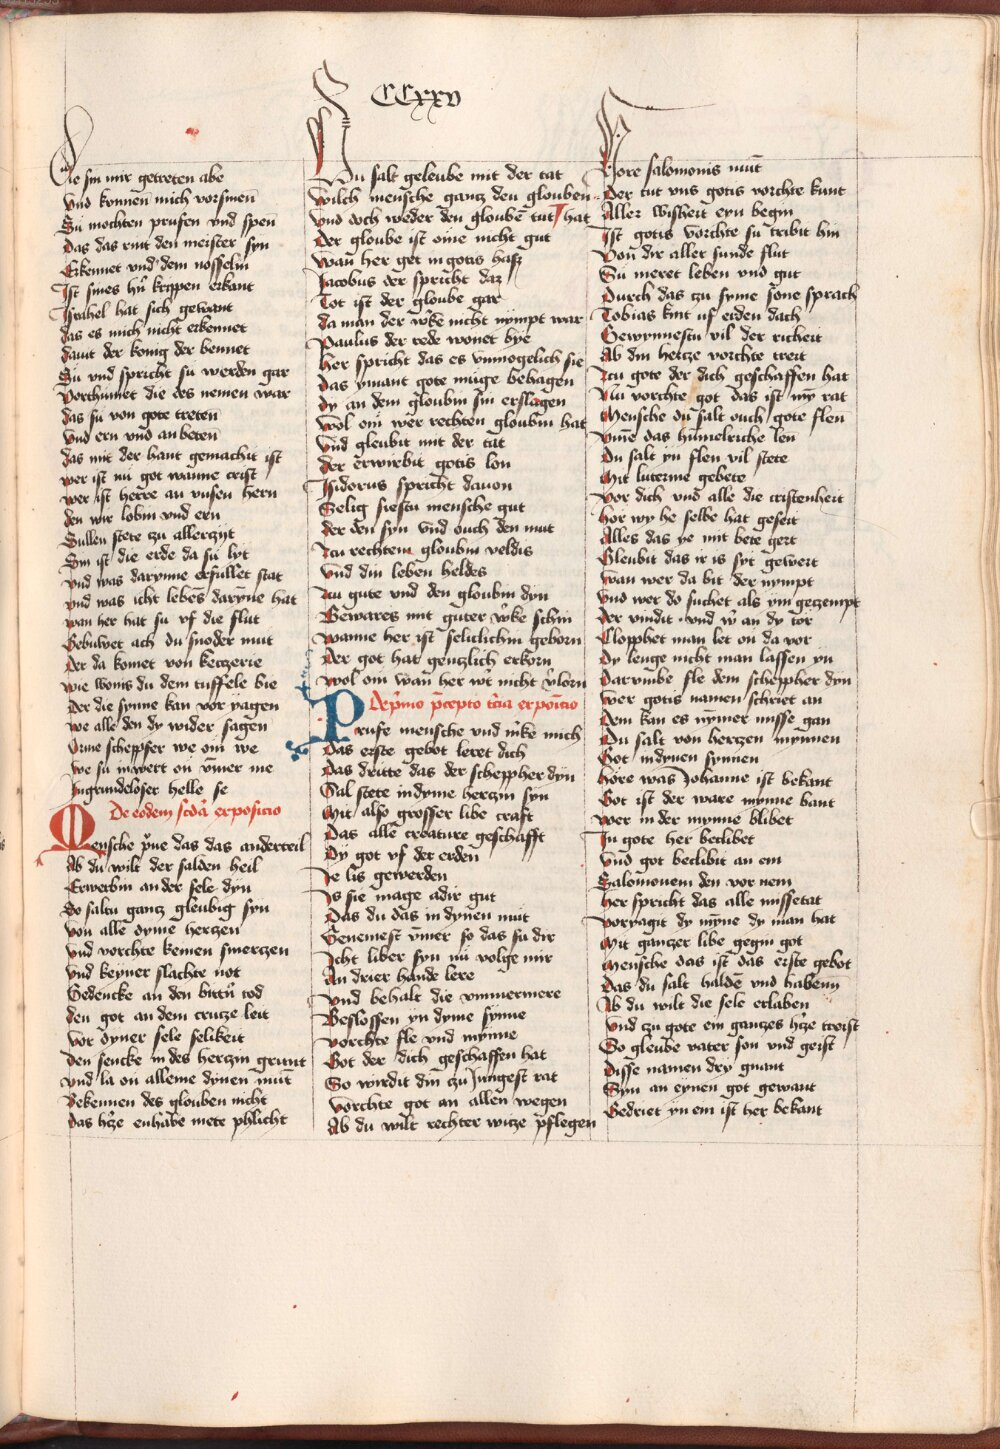 CCxxv
Sie sin mir getreten abe
Vnd konnen mich vorsmen
Sü mochten prufen vnd spen
Das das rint den meister syn
Erkennet vnd dem nosselin
Ist sines hrn krippen erkant
Israhel hat sich gewant
das es mich nicht erkennet
dauit der konig der bennet
Sü vnd spricht su werden gar
Vorthumet die des nemen war
das su von gote treten
Vnd ern vnd an beten
das mit der hant gemachit ist
wer ist nü got wanne crist
wer ist herre an vnsen hern
den wir lobin vnd ern
Sullen stete zu allerzyt
Sin ist die erde da su lyt
vnd was darynne erfullet stat
vnd was icht lebens daryne hat
wan her hat su vf die flut
Gebuwet ach du snoder mut
Der da komet von ketzerie
wie woms du dem tuffele bie
Der die synne kan vor yagen
we alle den dy wider sagen
Orme scheppfer we om we
we su inwert on vmer me
Ingrundeloser helle se
De eodem scda expositio
Mensche pue das das anderteil
Ab du wilt der salden heil
Erwerbin an der sele dyn
So saltu gancz gleubig syn
Von alle dyme herczen
vnd vorchte keinen smerczen
vnd keyner slachte not
Gedencke an den bittn tod
den got an dem crucze leit
Vor dyner sele selikeit
Den sencke in des herczin grunt
vnd la on alleme dynen munt
Bekennen des glouben nicht
das hcze enhabe mete phlicht
Du salt geleube mit der tat
Wilch mensche gancz den glouben
Vnd doch weder den glouben tut hat
Der gloube ist oime nicht gut
Wan her get in gotis hass
Jacobus der spricht daz
Tot ist der gloube gar
da man der wke nicht nympt war
Paulus der rede wonet bye
Her spricht das es vnmogelich sie
das ymant gote müge behagen
dy an dem gloubin sin erslagen
Wol om wer rechten gloubin hat
Vnd gleubit mit der tat
der erwirbit gotis lon
Isidorus spricht dauon
Selig siestu mensche gut
der den syn vnd ouch den mut
In rechtem gloubin veldis
Vnd din leben heldes
In gute vnd den gloubin dyn
Bewares mit guter wke schin
wanne her ist seliclichin geborn
Der got hat genczlich erkorn
Wol om wan her wt nicht vlorn
De pmo pcepto tcia expoicio
Prufe mensche vnd mke mich
Das erste gebot leret dich
Das dritte das der scheppher dyn
Sal stete indyme herczin syn
Mit also grosser libe craft
Das alle creature geschafft
Dy got vf der erden
Je lis gewerden
Is sie mage adir gut
Das du das in dynen mut
Genemest vmer so das su dir
Icht liber syn nü volge mir
An drier hande lere
vnd behalt die vmmermere
Beslossen yn dyme synne
vorchte fle vnd mynne
Got der dich geschaffen hat
So wirdit din zu Jungest rat
Vorchte got an allen wegen
Ab du wilt rechter wicze pflegen
Hore salomonis mut
Der tut vns gotis vorchte kunt
Aller wisheit eyn begin
Ist gotis vorchte su tribit hin
Von dir aller sunde flut
Su meret leben vnd gut
Durch das zu syme sone sprach
Tobias kint uf erden dach
Gewynnestu vil der richeit
Ab din hercze vorchte treit
Zcu gote der dich geschaffen hat
Nu vorchte got das ist my rat
Mensche du salt ouch gote flen
vmme das hymelriche len
Du salt yn flen vil stete
Mit luterme gebete
Vor dich vnd alle die cristenheit
Hor wy he selbe hat geseit
Alles das ye mit bete gert
Gleubit das ir is syt gewert
Wan wer da bit der nympt
Vnd wer do suchet als ym geczempt
Der vindit vnd w an dy tor
Clopphet man let on da vor
Dy lenge nicht man lassen yn
Darvmbe fle dem scheppher dyn
Wer gotis namen schriet an
Dem kan es nymer misse gan
Du salt von herczen mynnen
Got indynen synnen
Hore was Johanne ist bekant
Got ist der ware mynne bant
Wer in der mynne blibet
In gote her beclibet
Vnd got beclibit an em
Salomonem den vor nem
Her spricht das alle missetat
Voryagit dy myne dy man hat
Mit ganczer libe gegin got
Mensche das ist das erste gebot
Das du salt halden vnd habenn
Ab du wilt die sele erlaben
Vnd zu gote ein ganczes hcze treist
So gleube vater son vnd geist
Disse namen dry gnant
Syn an eynen got gewant
Gedriet yn em ist her bekant